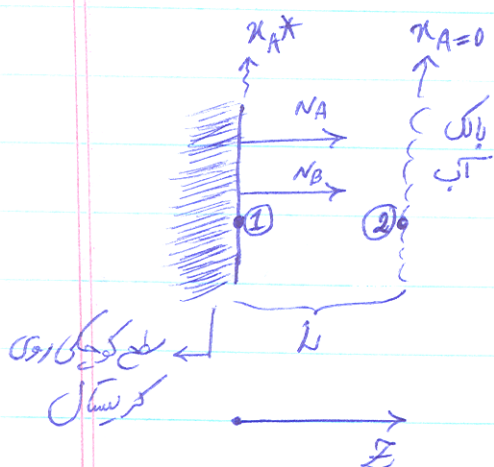 x_A*
x_A=0
N_A
بالک
آب
N_B
① ②
L
سطح کوچکی روی
کریستال
Z